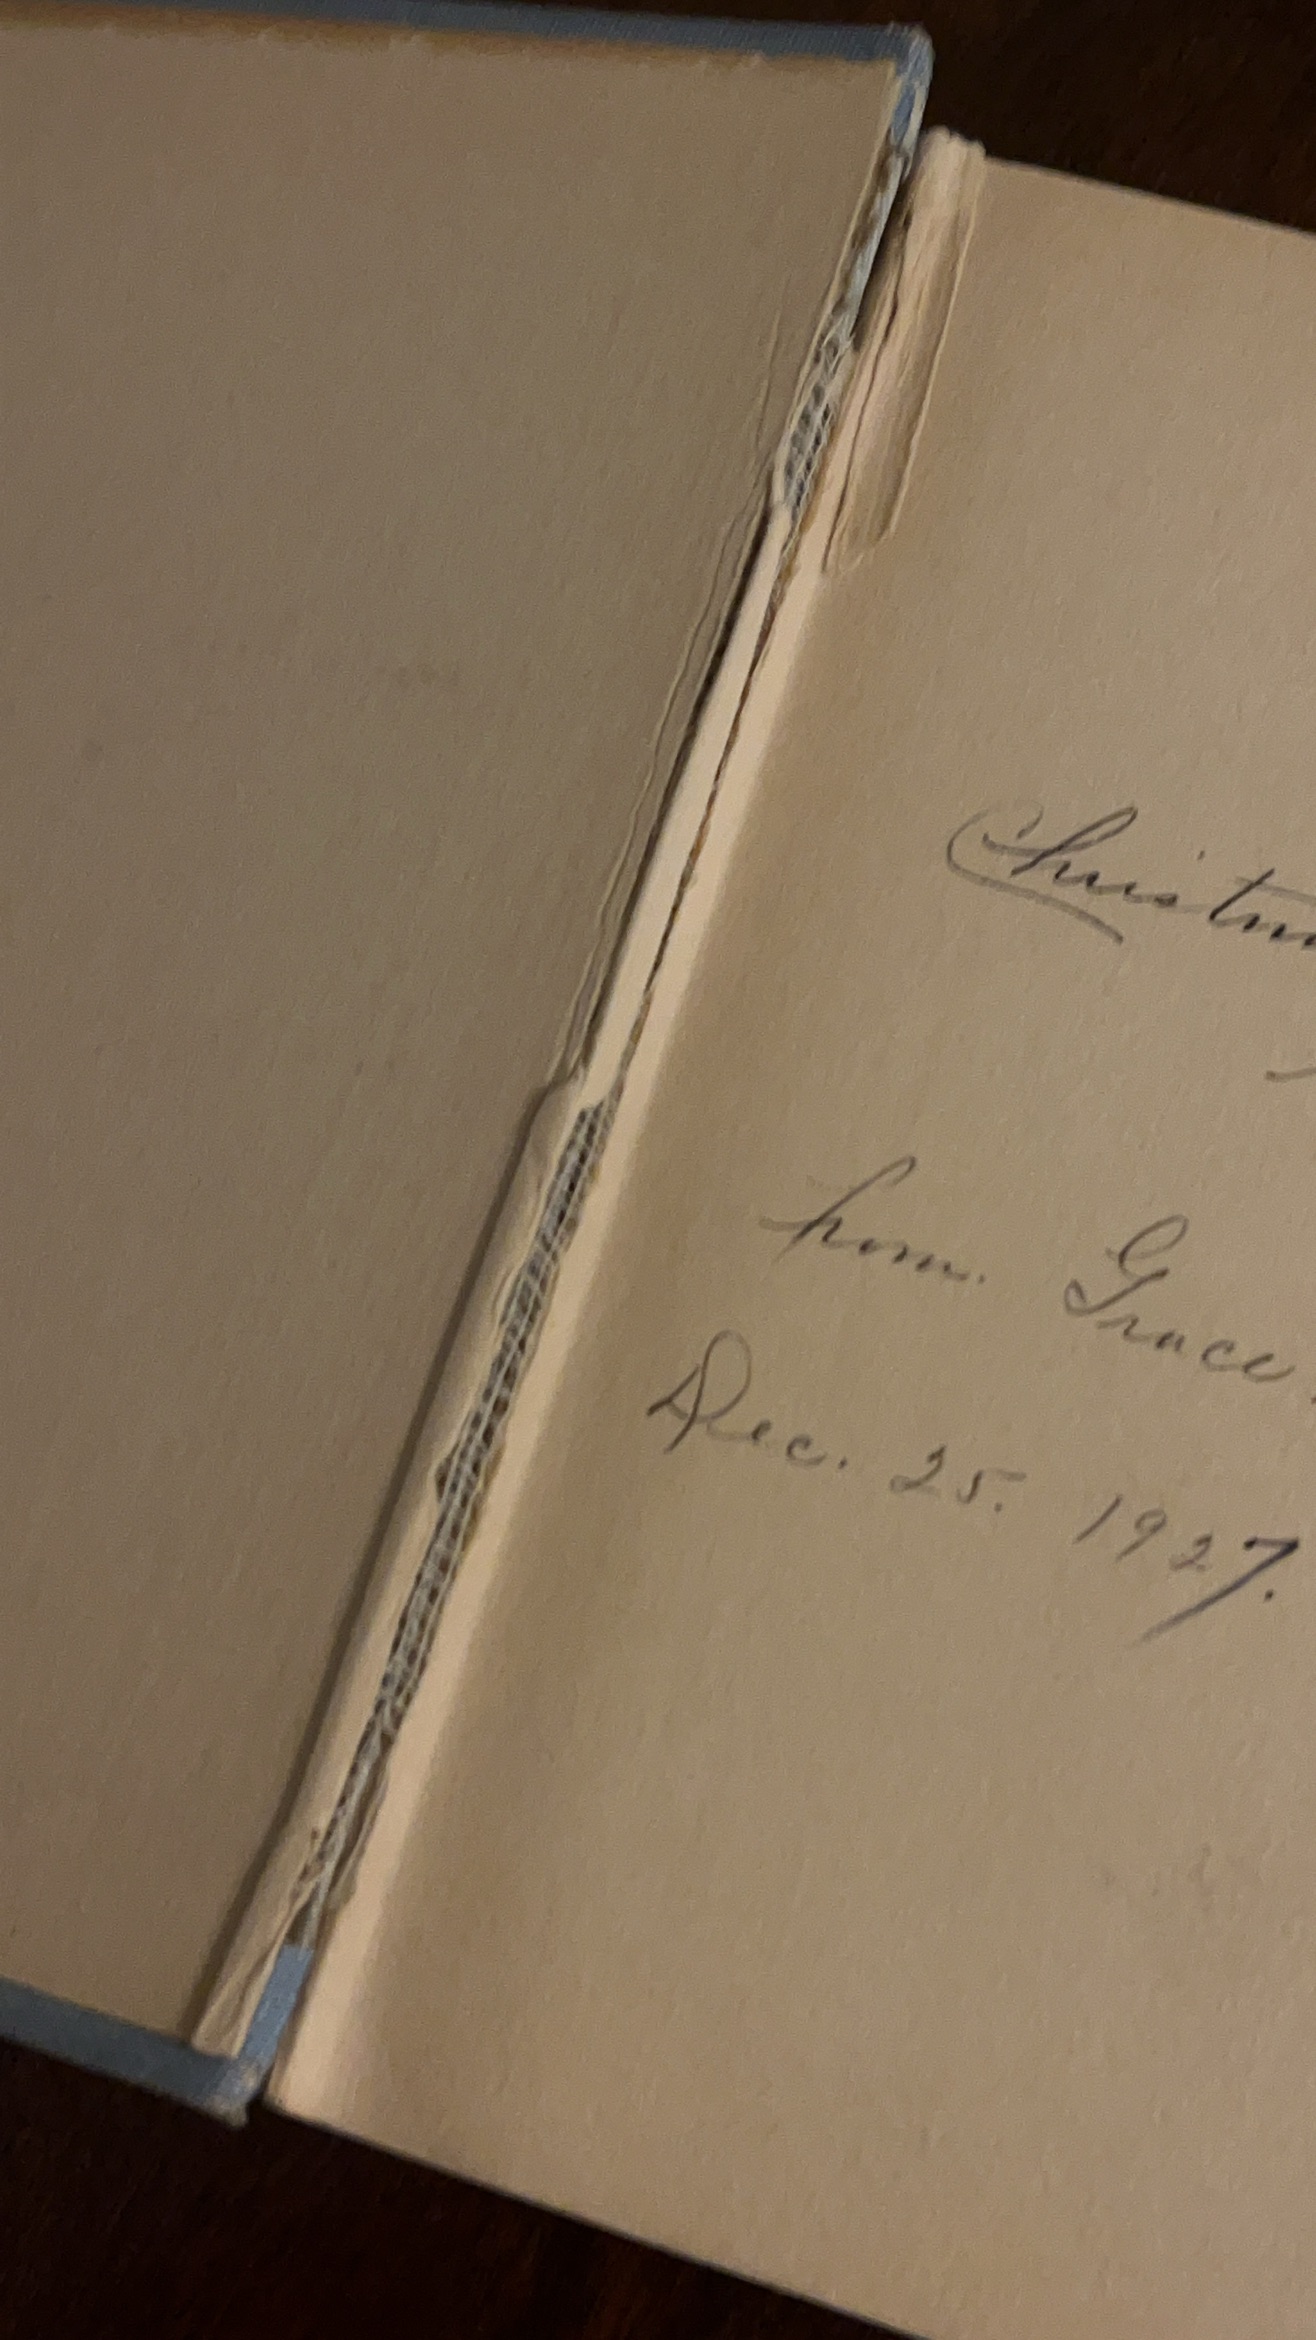 Christm
from Grace.
Dec. 25. 1927.